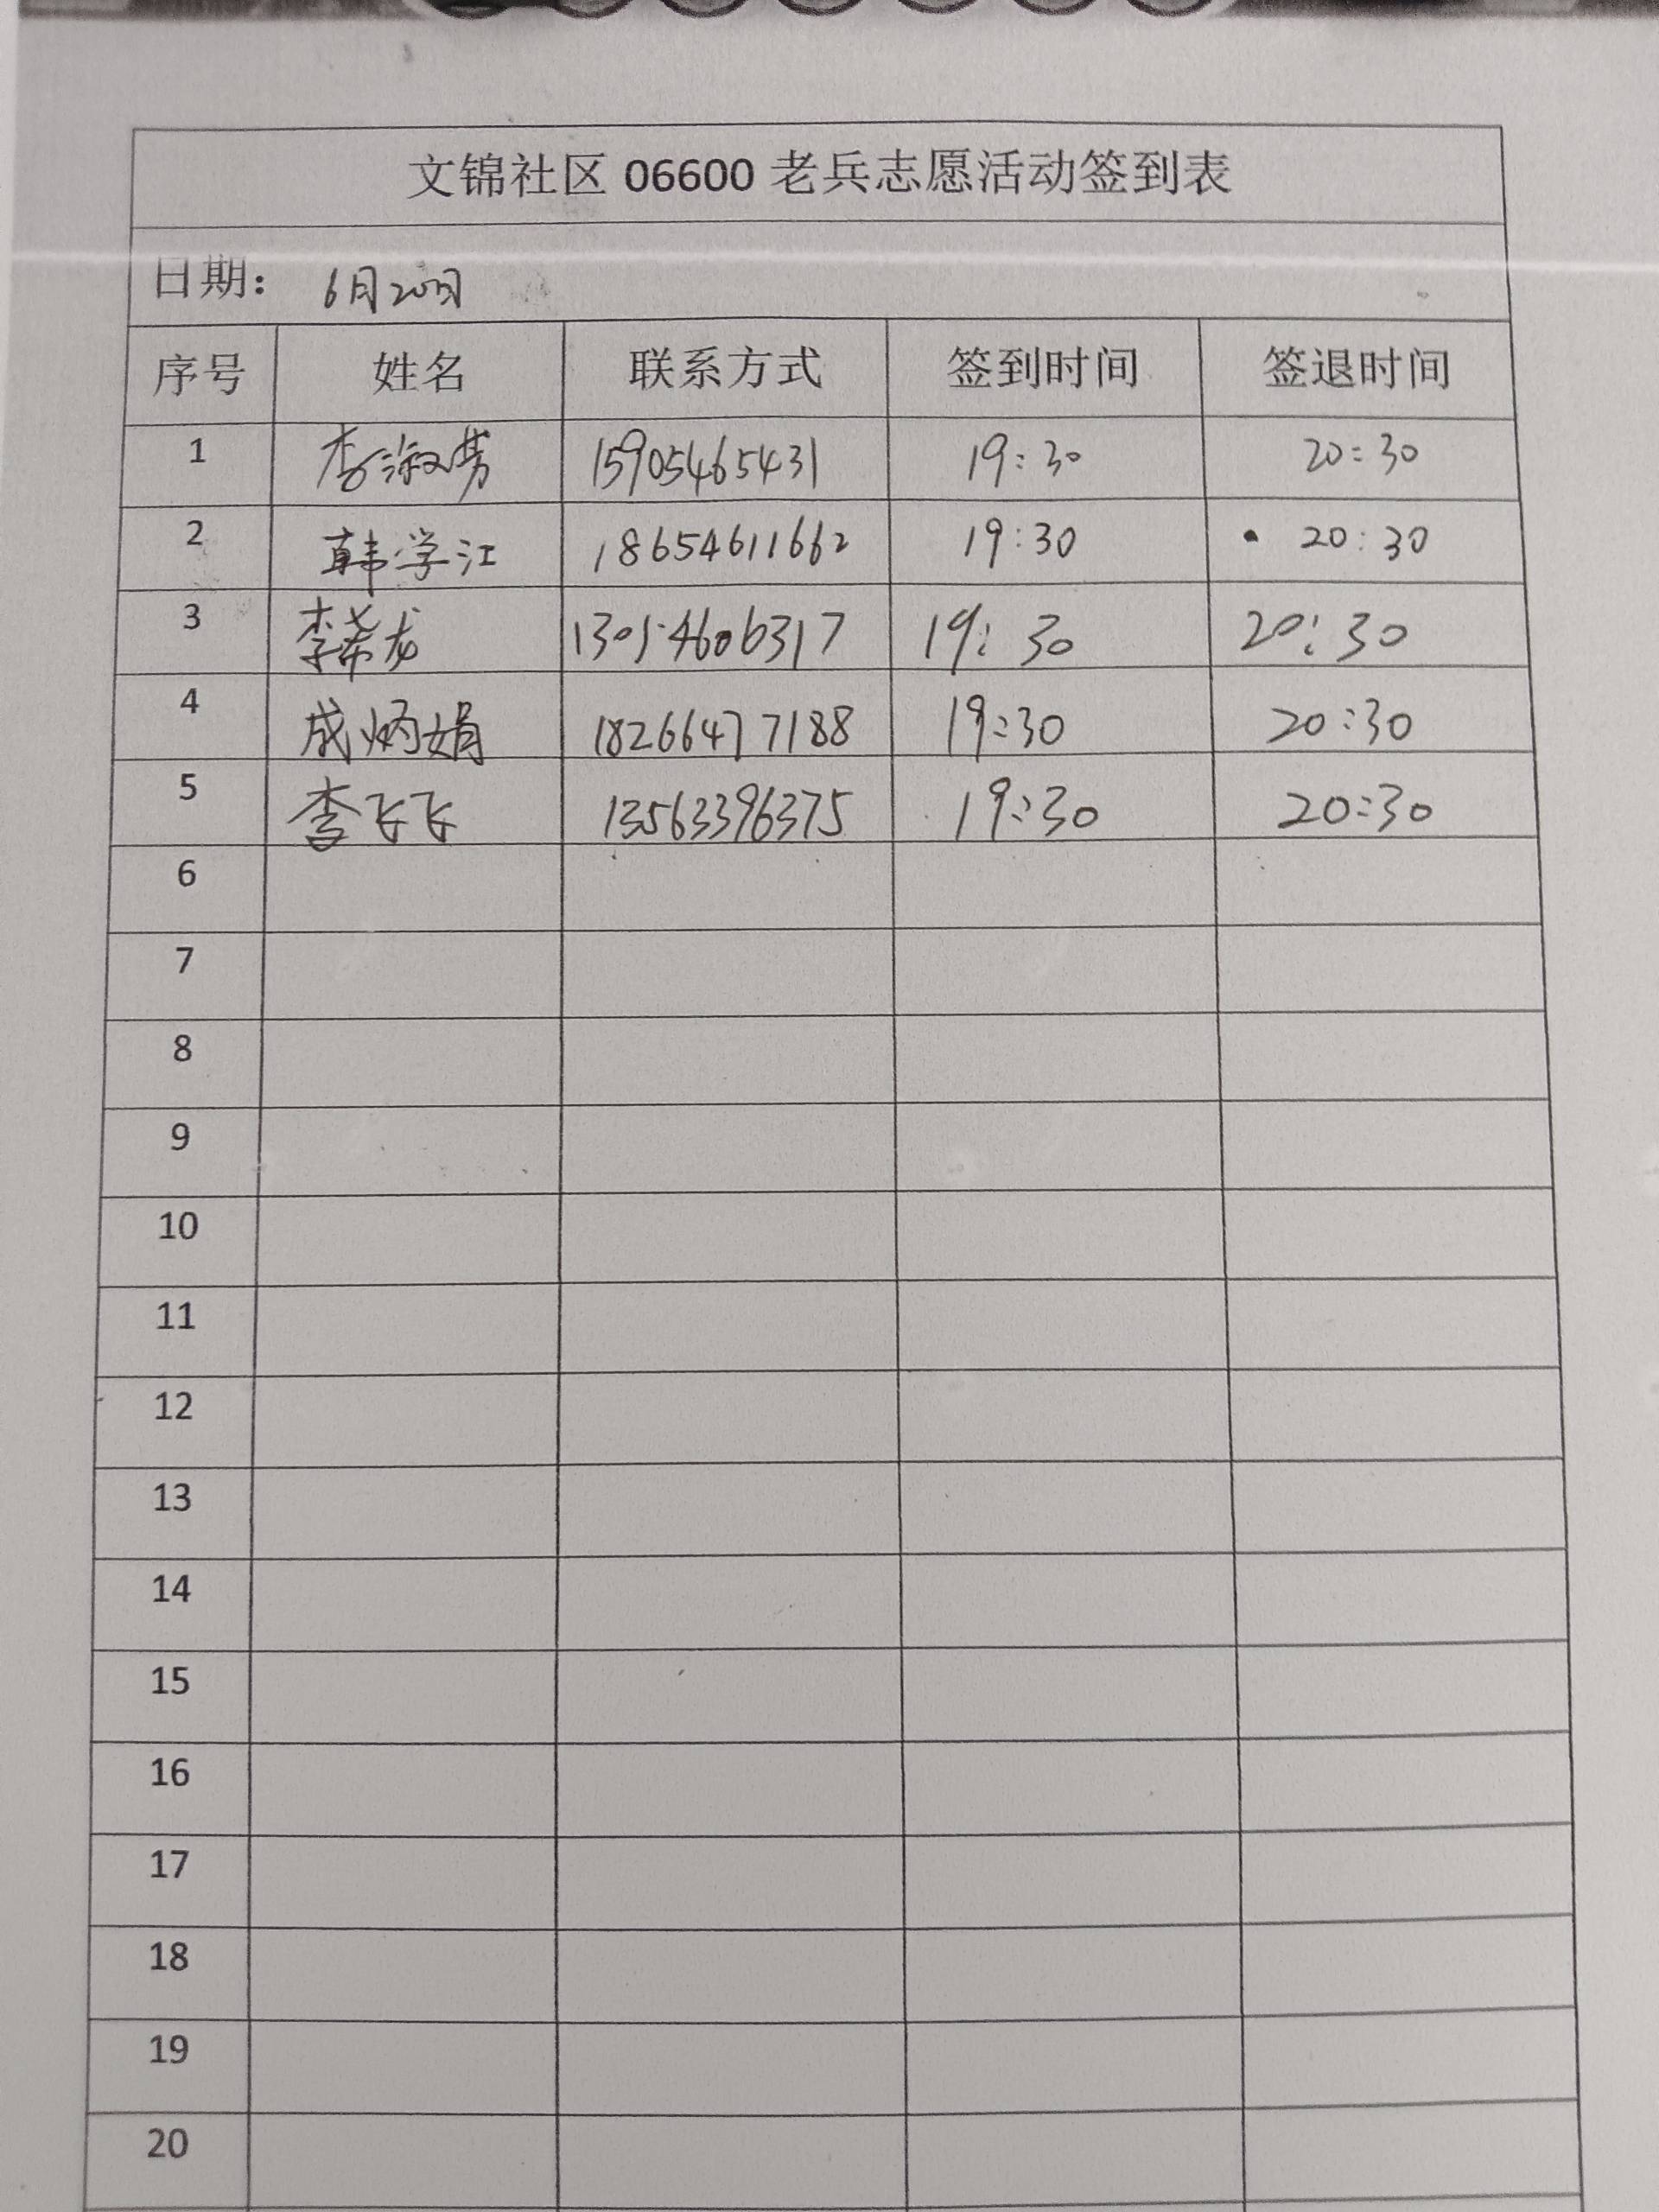 文锦社区 06600 老兵志愿活动签到表
日期： 6月20日
序号 姓名 联系方式 签到时间 签退时间
1 李淑芳 15905465431 19:30 20:30
2 韩学江 18654611662 19:30 20:30
3 李希龙 13054606317 19:30 20:30
4 成炳娟 18266477188 19:30 20:30
5 李飞飞 13563396375 19:30 20:30
6
7
8
9
10
11
12
13
14
15
16
17
18
19
20